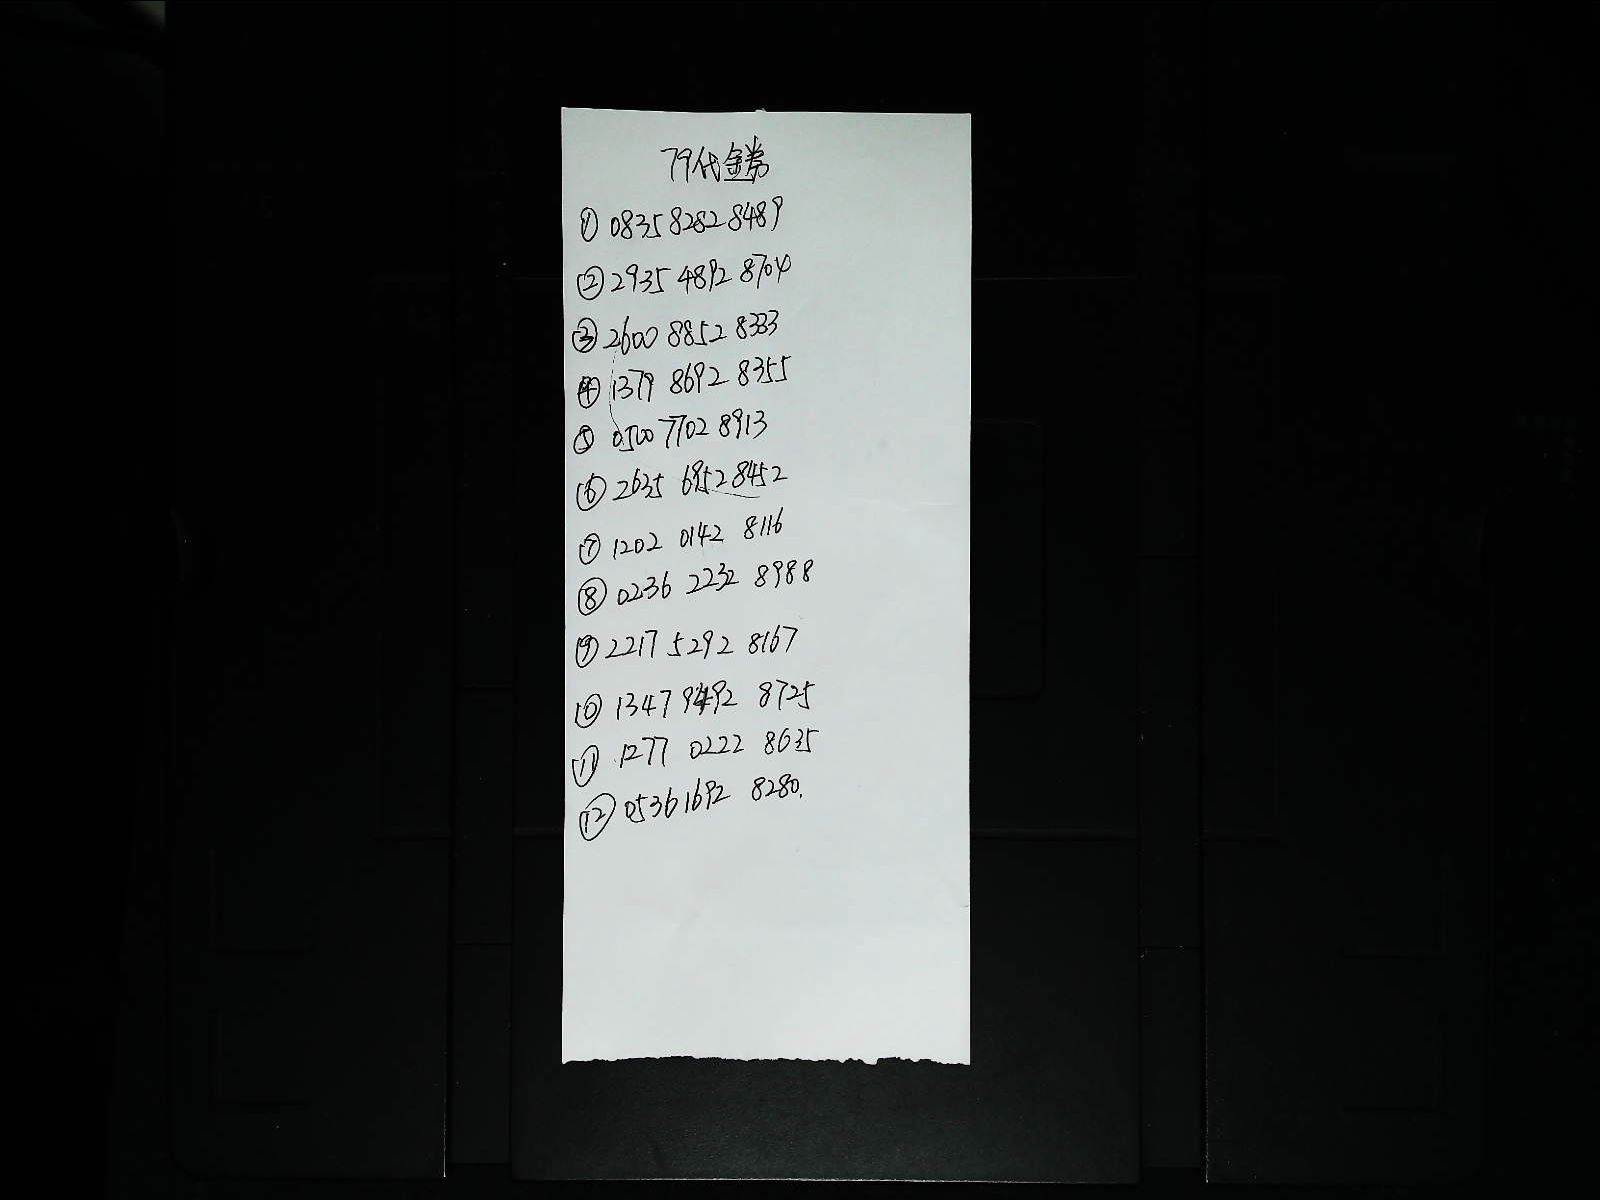 79代金券
① 0835 8282 8489
② 2935 4892 8704
③ 2600 8852 8333
④ 1379 8692 8355
⑤ 0500 7702 8913
⑥ 2635 6952 8452
⑦ 1202 0142 8116
⑧ 0236 2232 8988
⑨ 2217 5292 8167
⑩ 1347 9492 8725
⑪ 1277 0222 8635
⑫ 0536 1692 8280.